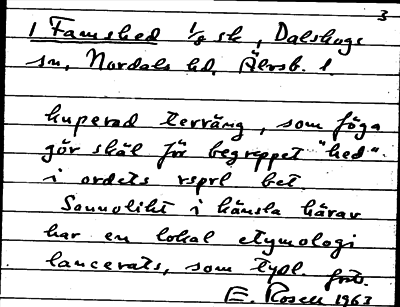 3
1 Famshed 1/8 sk, Dalskogs
sn, Nordals hd, Älvsb. l.
kuperad terräng, som föga
gör skäl för begreppet "hed"
i ordets rsprl bet.
Sannolikt i känsla härav
har en lokal etymologi
lancerats, som typl. forts.
E. Rosell 1963